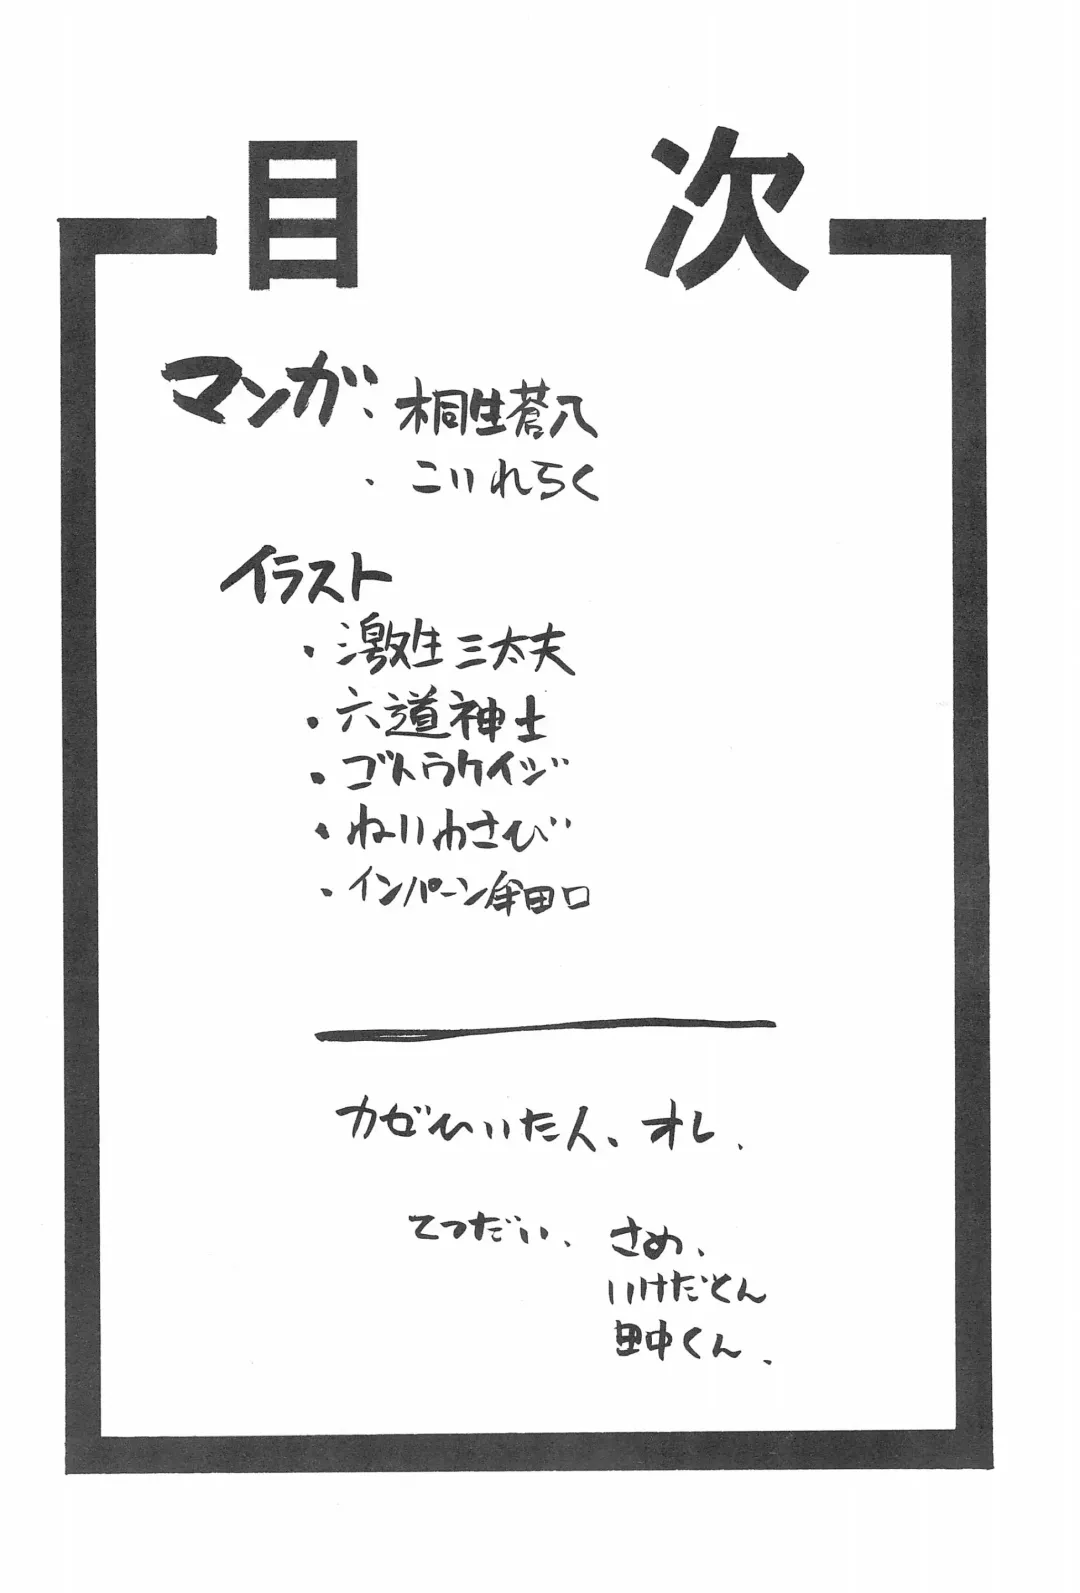 目次
マンガ、桐生蒼八
・こいれらく
イラスト
・激生三太夫
・六道神士
・ゴトウケイジ
・ねりわさび
・インパーン牟田口
カゼひいた人、オレ．
てつだい、さめ、
いけだとん
田中くん．